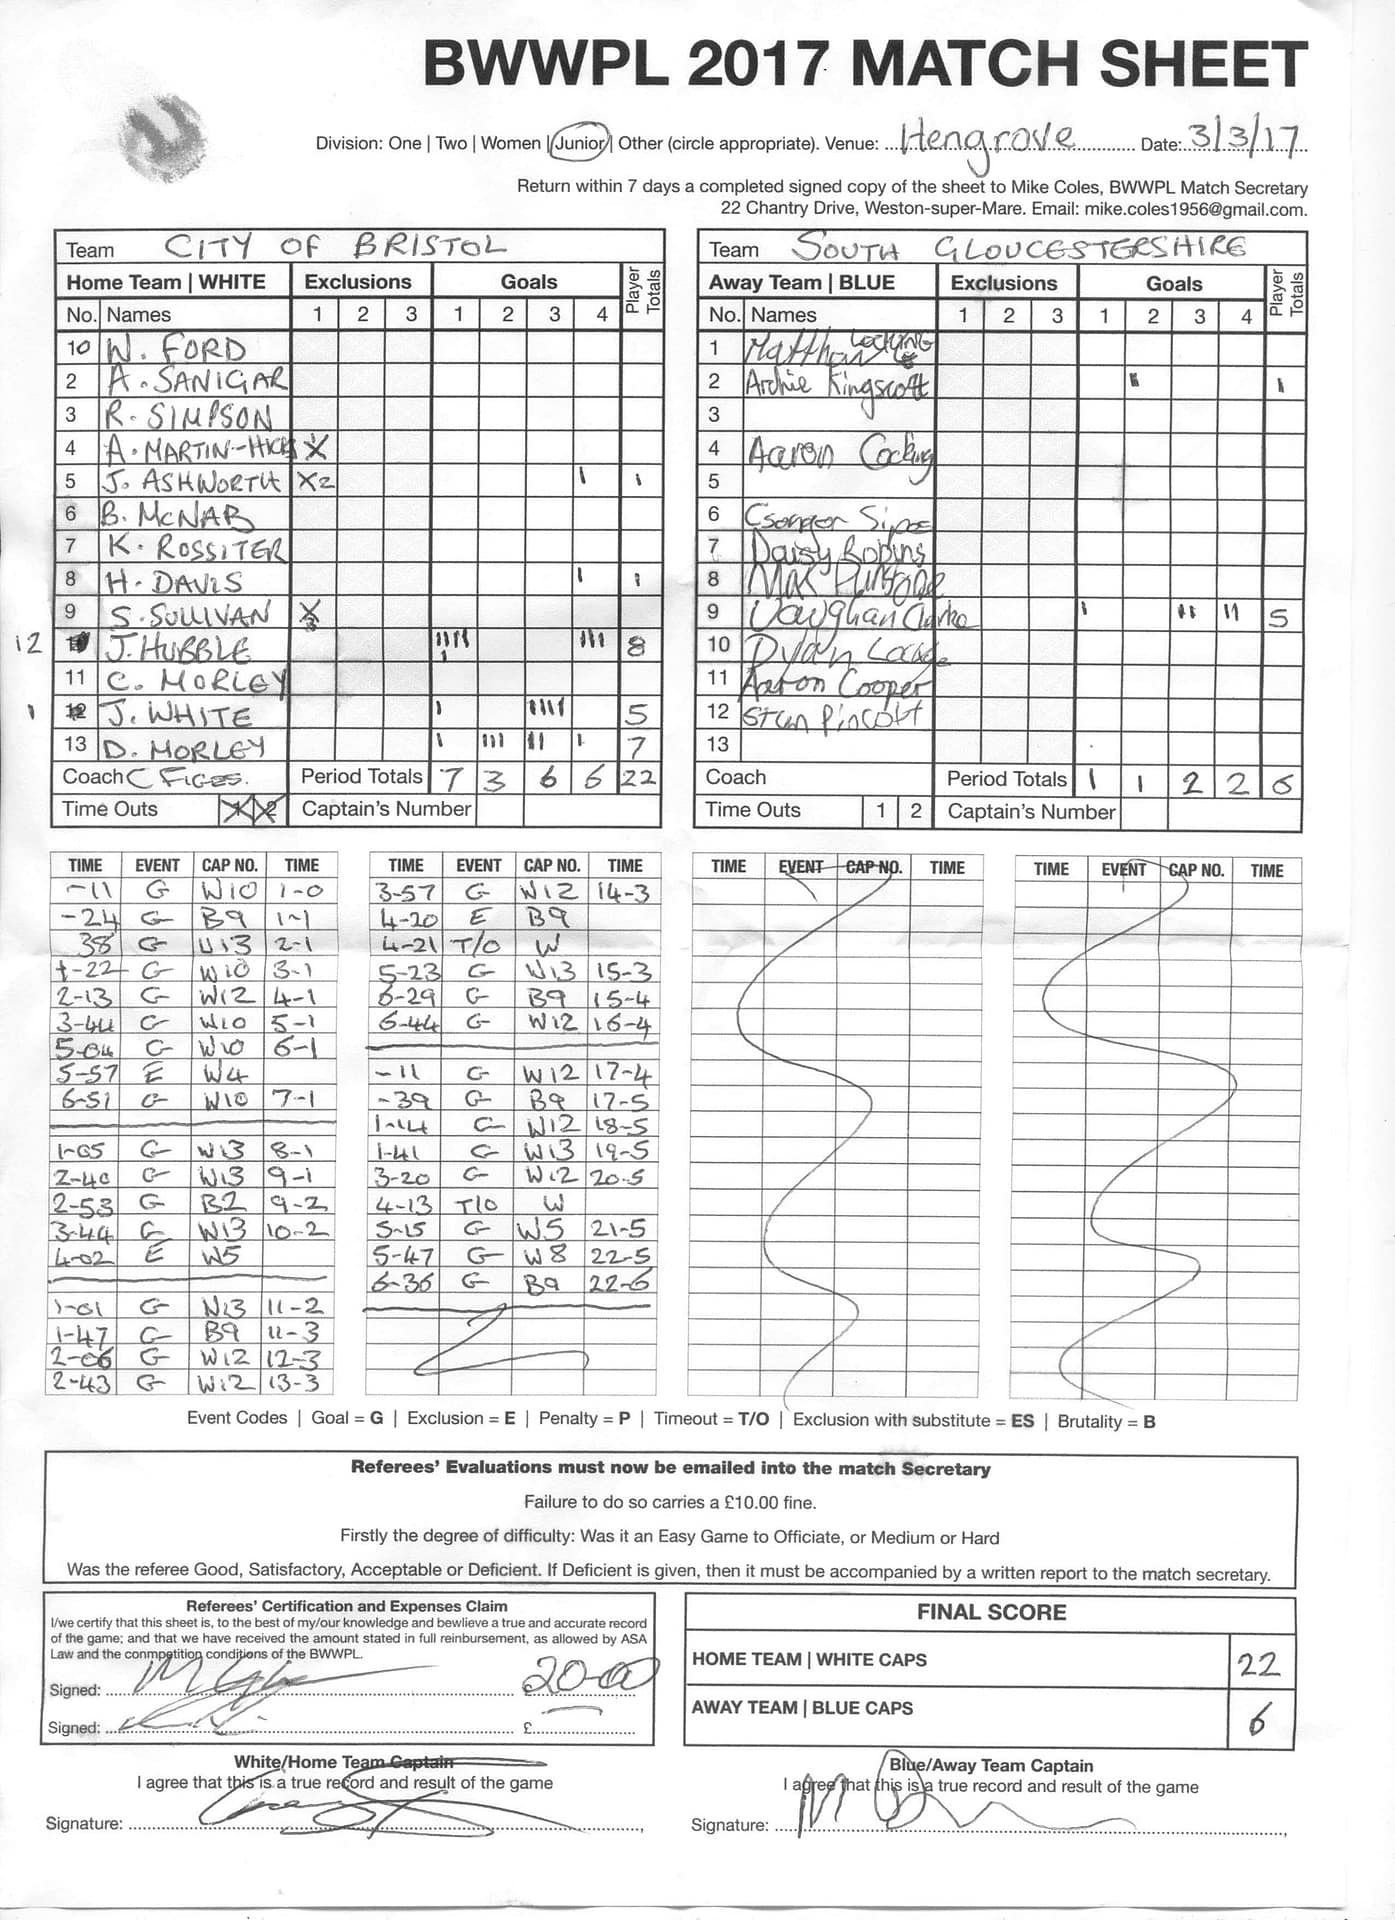 BWWPL 2017 MATCH SHEET
Division: One | Two | Women | Junior | Other (circle appropriate). Venue: Hengrove Date: 3/3/17
Return within 7 days a completed signed copy of the sheet to Mike Coles, BWWPL Match Secretary
22 Chantry Drive, Weston-super-Mare. Email: mike.coles1956@gmail.com.
Team CITY OF BRISTOL
Home Team | WHITE Exclusions Goals Player Totals
No. Names 1 2 3 1 2 3 4
10 W. FORD
2 A. SANIGAR
3 R. SIMPSON
4 A. MARTIN-HICKS X
5 J. ASHWORTH X2 I I
6 B. McNAB
7 K. ROSSITER
8 H. DAVIS I I
9 S. SULLIVAN X
12 J. HUBBLE IIII I III 8
11 C. MORLEY
1 12 J. WHITE I IIII 5
13 D. MORLEY I III II I 7
Coach C FIGES. Period Totals 7 3 6 6 22
Time Outs 1 2 Captain's Number
Team SOUTH GLOUCESTERSHIRE
Away Team | BLUE Exclusions Goals Player Totals
No. Names 1 2 3 1 2 3 4
1 Matthew COCKING
2 Archie Kingscott I 1
3
4 Aaron Cocking
5
6 Csongor
7 Daisy Robins
8 Max
9 Vaughan Clarke I II II 5
10 Dylan
11 Aaron Cooper
12 Stan Pincott
13
Coach Period Totals 1 1 2 2 6
Time Outs 1 2 Captain's Number
TIME EVENT CAP NO. TIME
-11 G W10 1-0
-24 G B9 1-1
38 G W13 2-1
1-22 G W10 3-1
2-13 G W12 4-1
3-44 G W10 5-1
5-04 G W10 6-1
5-57 E W4
6-51 G W10 7-1
1-05 G W13 8-1
2-40 G W13 9-1
2-53 G B2 9-2
3-44 G W13 10-2
4-02 E W5
1-01 G W13 11-2
1-47 G B9 11-3
2-06 G W12 12-3
2-43 G W12 13-3
TIME EVENT CAP NO. TIME
3-57 G W12 14-3
4-20 E B9
4-21 T/O W
5-23 G W13 15-3
6-29 G B9 15-4
6-44 G W12 16-4
-11 G W12 17-4
-39 G B9 17-5
1-14 G W12 18-5
1-41 G W13 19-5
3-20 G W12 20-5
4-13 T/O W
5-15 G W5 21-5
5-47 G W8 22-5
6-36 G B9 22-6
TIME EVENT CAP NO. TIME
TIME EVENT CAP NO. TIME
Event Codes | Goal = G | Exclusion = E | Penalty = P | Timeout = T/O | Exclusion with substitute = ES | Brutality = B
Referees' Evaluations must now be emailed into the match Secretary
Failure to do so carries a £10.00 fine.
Firstly the degree of difficulty: Was it an Easy Game to Officiate, or Medium or Hard
Was the referee Good, Satisfactory, Acceptable or Deficient. If Deficient is given, then it must be accompanied by a written report to the match secretary.
Referees' Certification and Expenses Claim
I/we certify that this sheet is, to the best of my/our knowledge and bewlieve a true and accurate record
of the game; and that we have received the amount stated in full reinbursement, as allowed by ASA
Law and the conmpetition conditions of the BWWPL.
Signed: 20-00
Signed: £
FINAL SCORE
HOME TEAM | WHITE CAPS 22
AWAY TEAM | BLUE CAPS 6
White/Home Team Captain
I agree that this is a true record and result of the game
Signature:
Blue/Away Team Captain
I agree that this is a true record and result of the game
Signature: